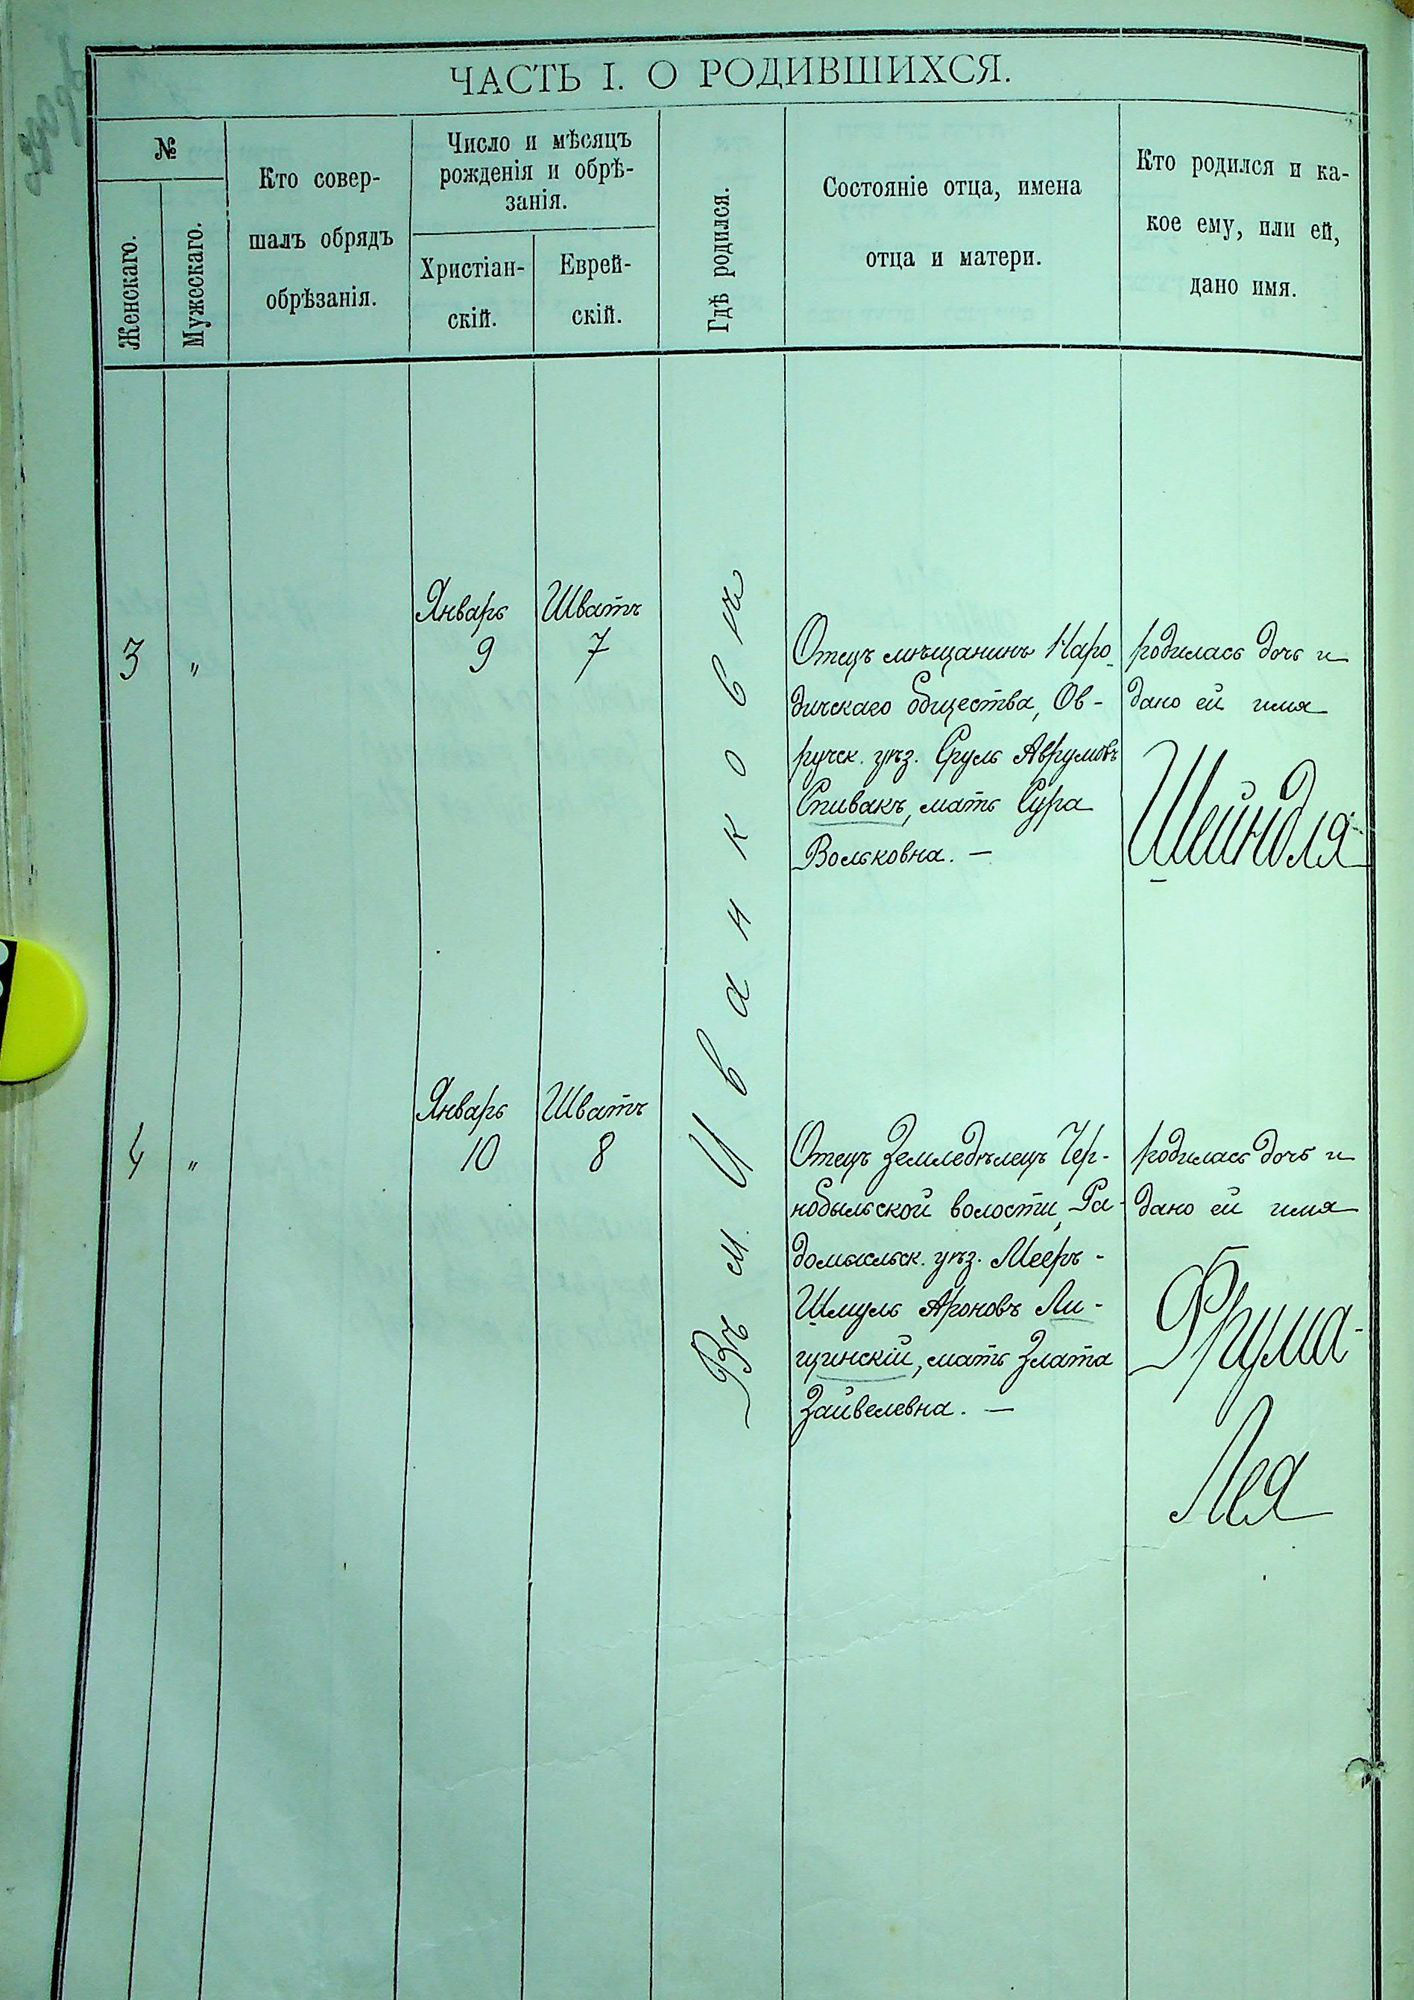 ЧАСТЬ I. О РОДИВШИХСЯ.
№
Женскаго.
Мужескаго.
Кто совер-
шалъ обрядъ
обрѣзанія.
Число и мѣсяцъ
рожденія и обрѣ-
занія.
Христіан-
скій.
Еврей-
скій.
Гдѣ родился.
Состояніе отца, имена
отца и матери.
Кто родился и ка-
кое ему, или ей,
дано имя.
Въ м. Иванкови
3
"
Январь
9
Шватъ
7
Отецъ мѣщанинъ Наро-
дичскаго общества, Ов-
ручск. уѣз. Сруль Аврумовъ
Спивакъ, мать Сура
Вольковна. —
родилась дочь и
дано ей имя
Шейндля
4
"
Январь
10
Шватъ
8
Отецъ Земледѣлецъ Чер-
нобыльской волости, Ра-
домысльск. уѣз. Мееръ-
Шмуль Ароновъ Ли-
щинскій, мать Злата
Зайвелевна. —
родилась дочь и
дано ей имя
Фрума-
Лея